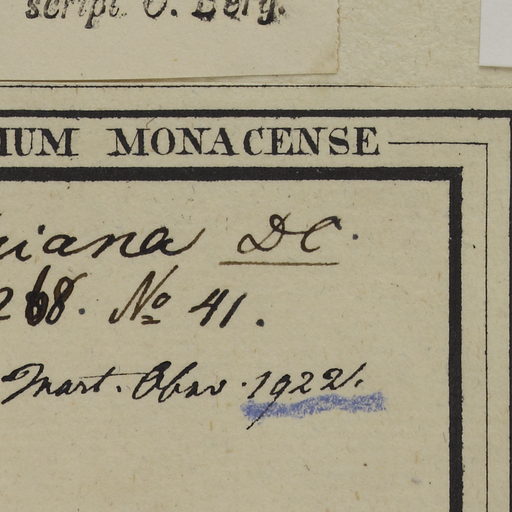 script O. Berg.
IUM MONACENSE
iana DC.
268. No 41.
Mart. Obsv. 1922.